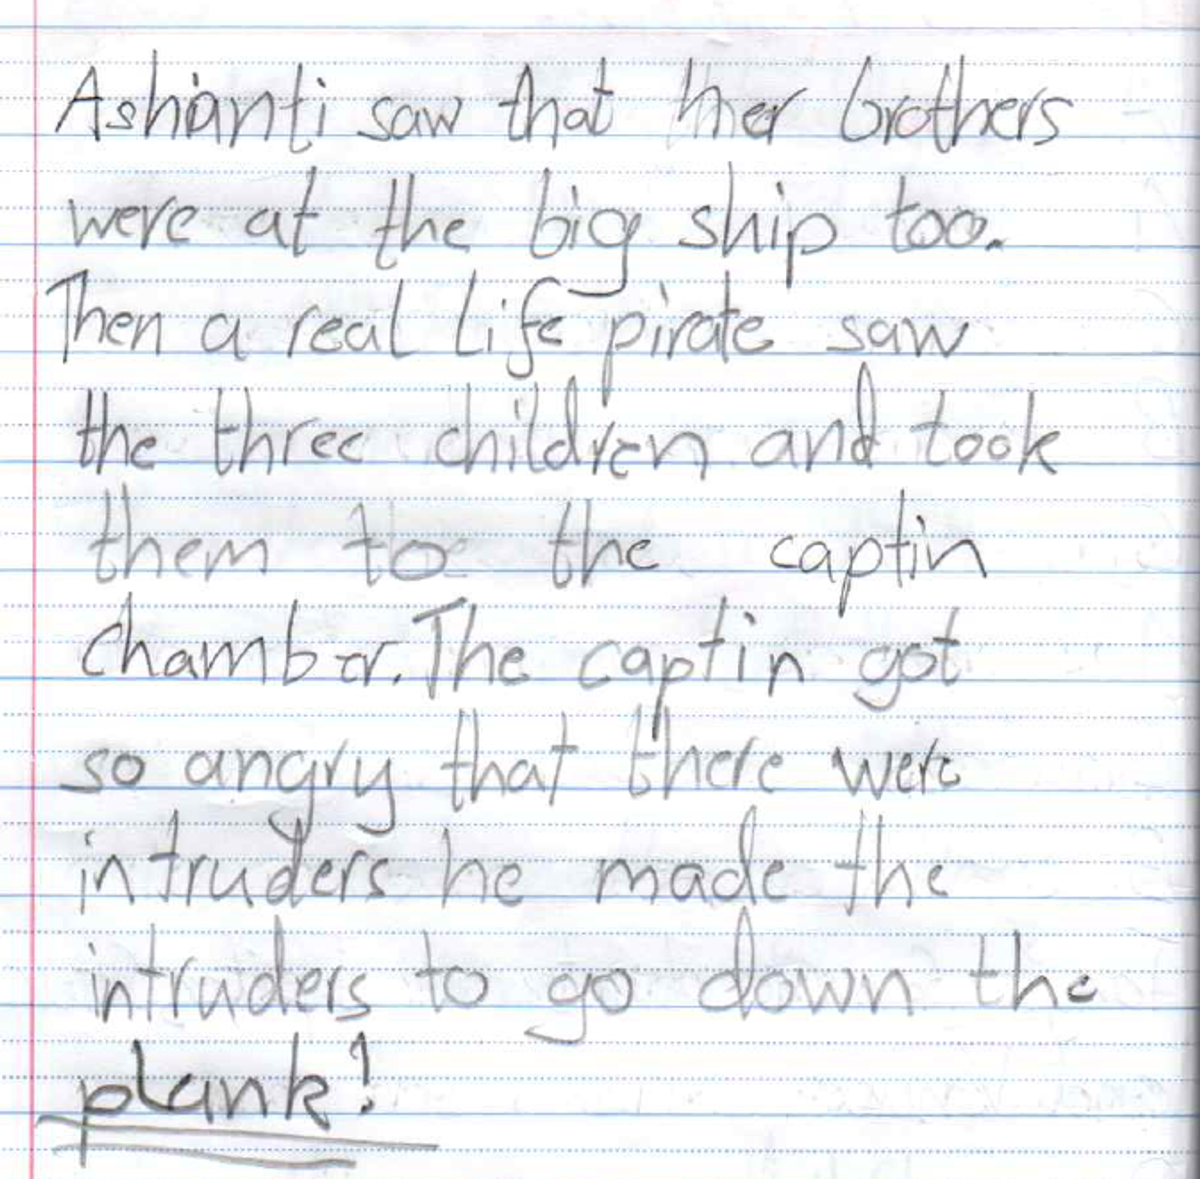 Ashanti saw that her brothers
were at the big ship too.
Then a real life pirate saw
the three children and took
them to the captin
chamber. The captin got
so angry that there were
intruders he made the
intruders to go down the
plank!